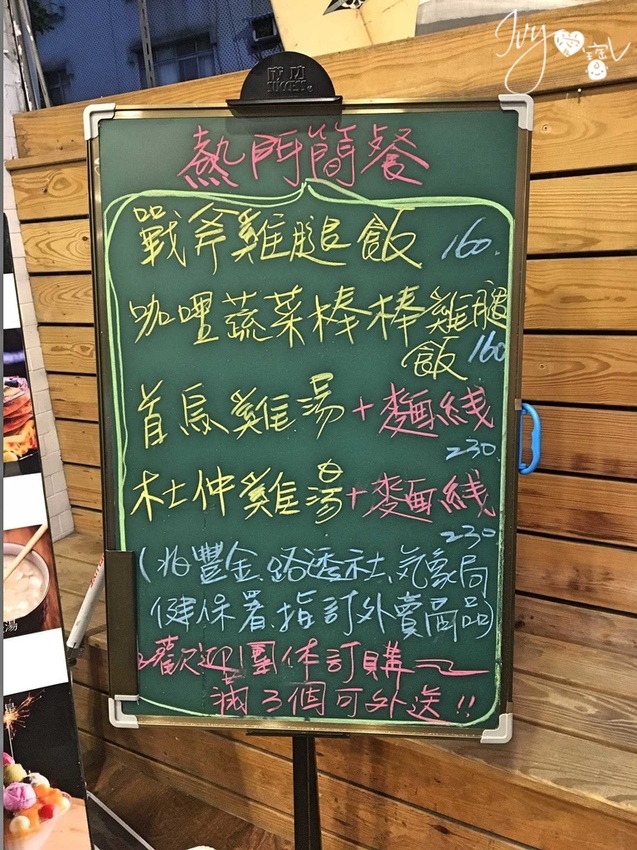 Ivy
成功
SUCCESS
熱門簡餐
戰斧雞腿飯 160.
咖哩蔬菜棒棒雞腿
飯 160
首烏雞湯+麵線
230
杜仲雞湯+麵線
230
(兆豐金、路透社、気象局
健保署、指訂外賣商品)
歡迎!團体訂購~
滿3個可外送!!
湯